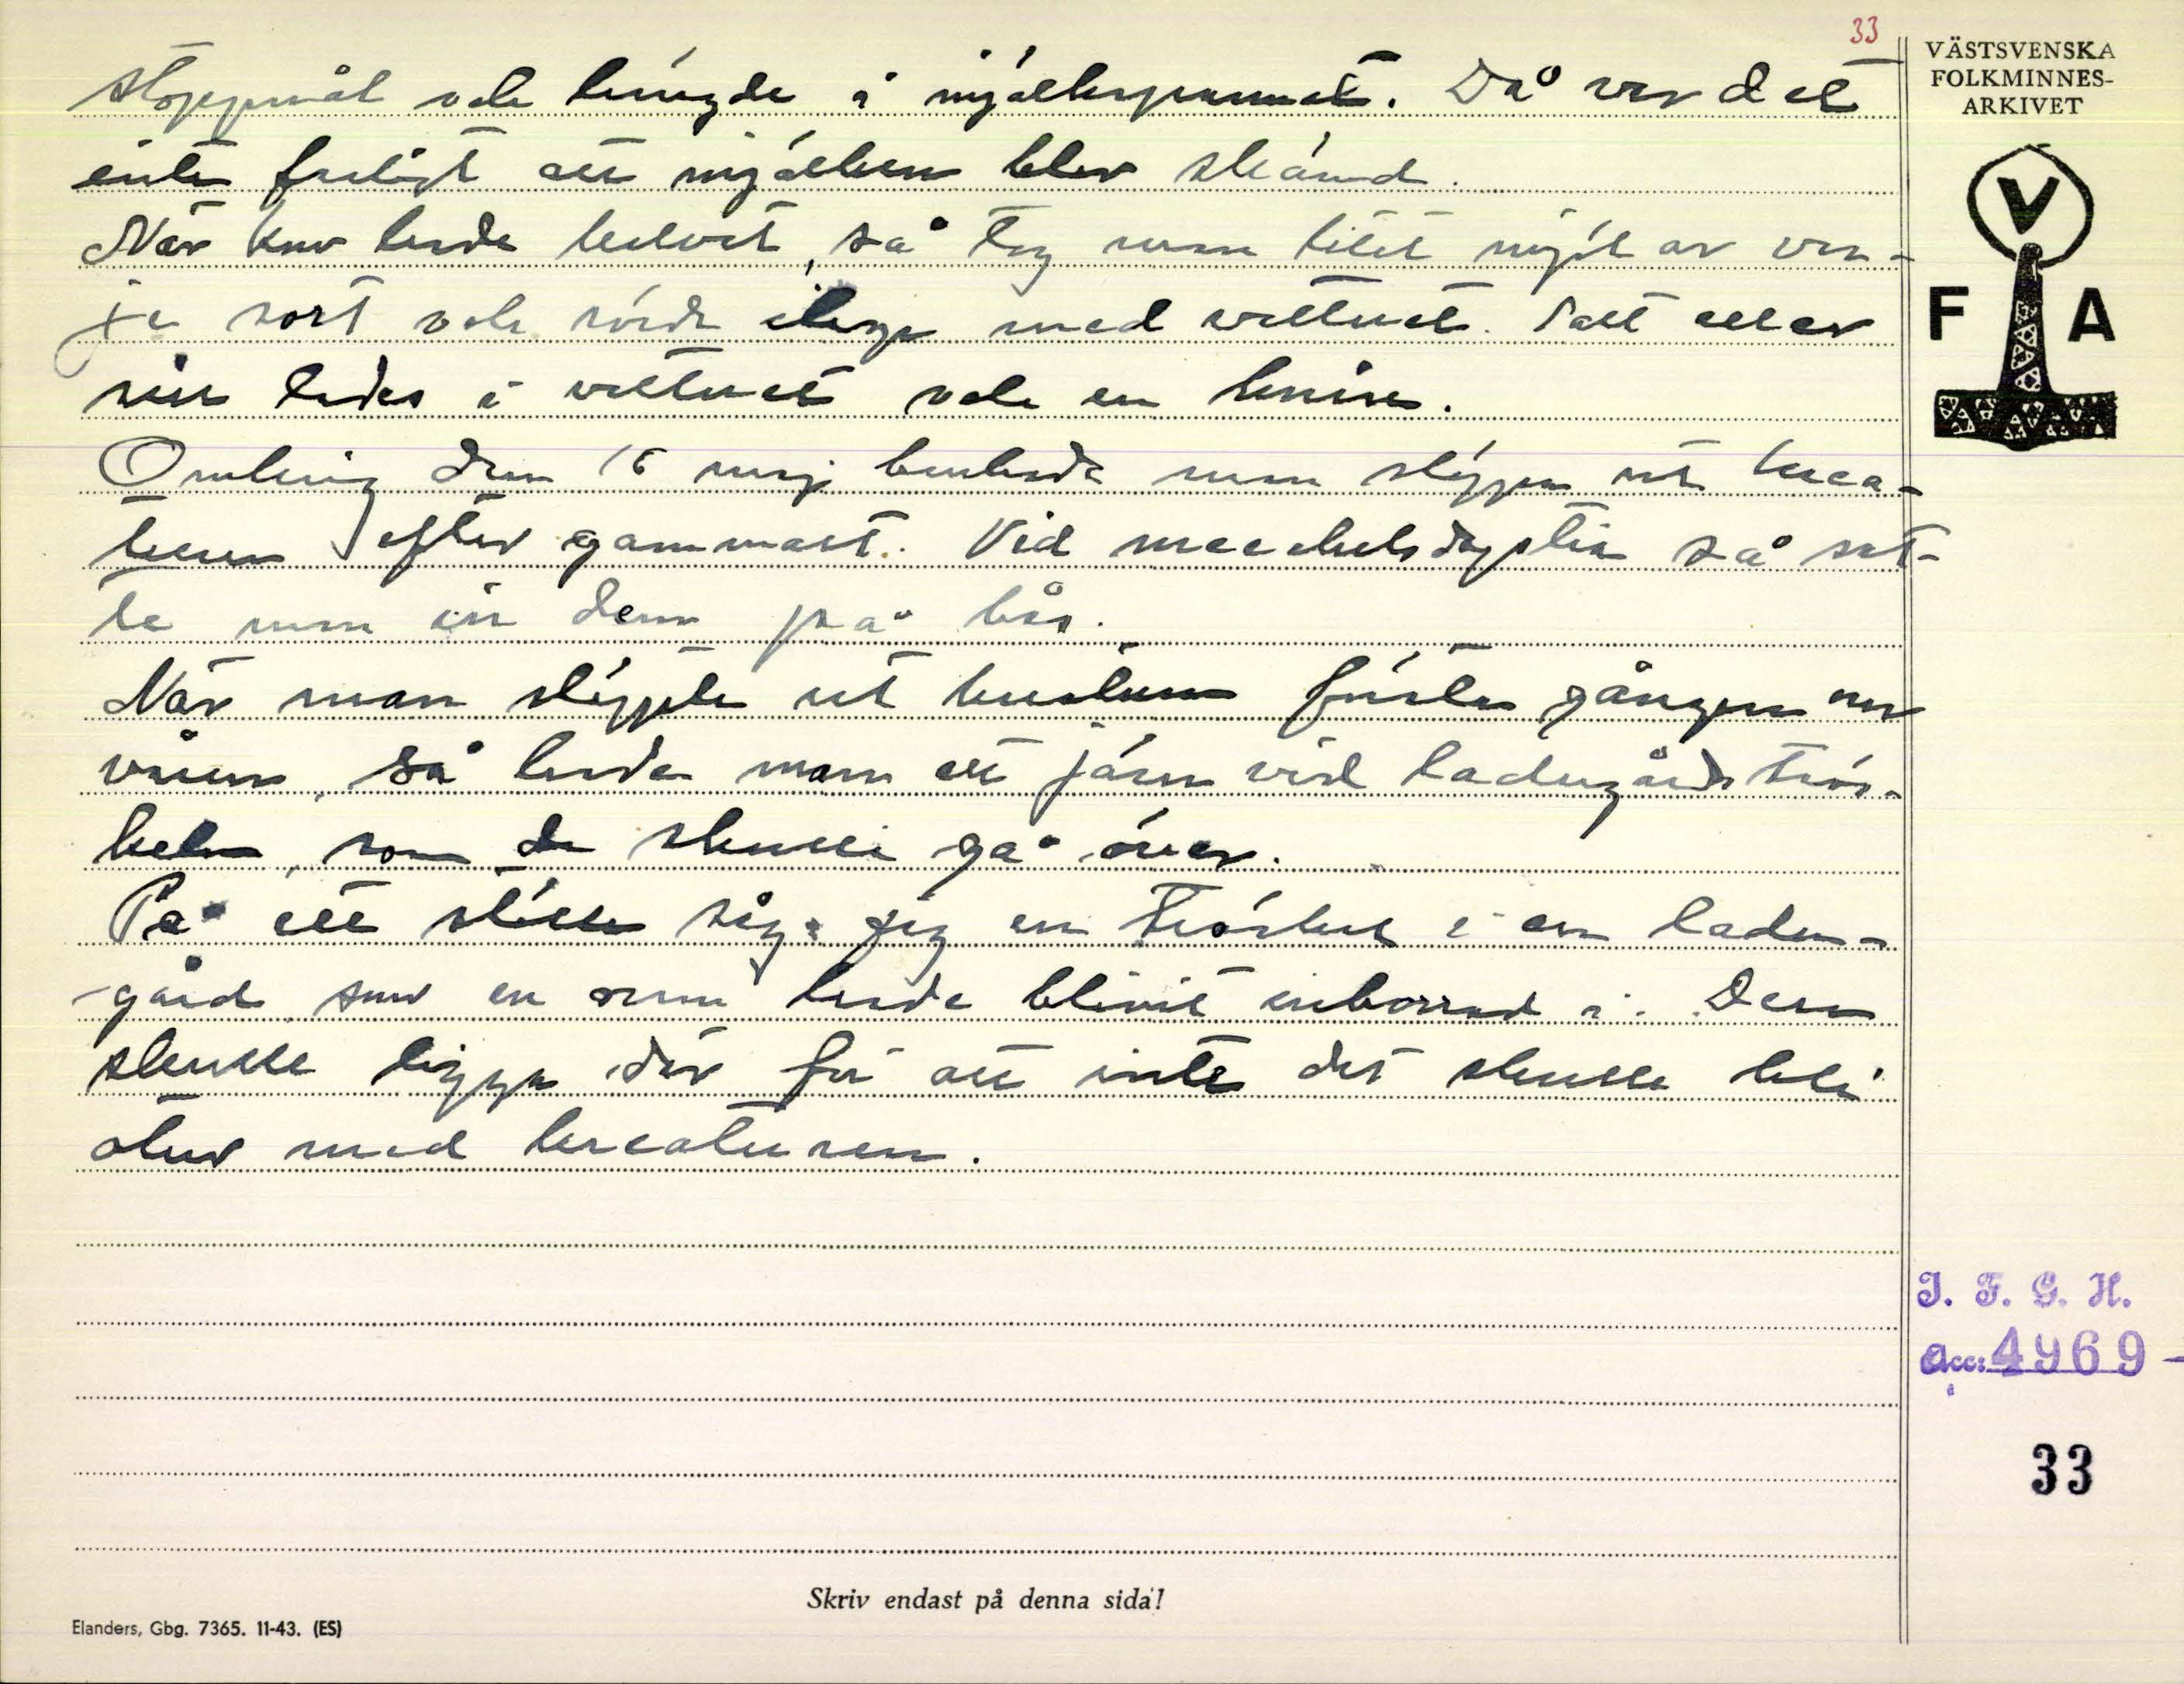 33
stoppmål och hängde i mjölkspannet. Då var det
inte farligt att mjölken blev skämd.
När kon hade kalvat, så tog man litet mjöl av var-
je sort och rörde ihop med vattnet. Salt eller
lades i vattnet och en
Omkring den 15 maj brukade man släppa ut krea-
turen efter gammalt. Vid mickelsdagstia så sat-
te man in dem på bås.
När man släppte ut kreaturen första gången om
våren, så lade man ett järn vid ladugårdströs-
keln, som de skulle gå över.
På ett ställe såg jag en tröskel i en ladu-
gård, som en orm hade blivit inborrad i. Den
skulle ligga där för att inte det skulle bli
otur med kreaturen.
VÄSTSVENSKA
FOLKMINNES-
ARKIVET
V
F A
I. F. G. H.
Acc: 4969
33
Skriv endast på denna sida!
Elanders, Gbg. 7365. 11-43. (ES)